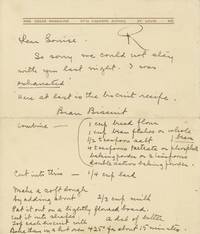 MRS. EDGAR ROMBAUER 5712 CABANNE AVENUE ST. LOUIS MO.
R
Dear Louise:
So sorry we could not stay
with you last night. I was
exhausted
Here at last is the biscuit recipe.
Bran Biscuit
Combine — 1 cup bread flour
1 cup bran flakes or whole bran
1/2 teaspoon salt
4 teaspoons tartrate or phosphate
baking powder or 2 teaspoons
double action baking powder.
Cut into this — 1/4 cup lard
Make a soft dough
by adding about 2/3 cup milk
Pat it out on a lightly floured board.
Cut it into shapes
Top each biscuit with a dot of butter
Bake them in a hot oven 425° for about 15 minutes.